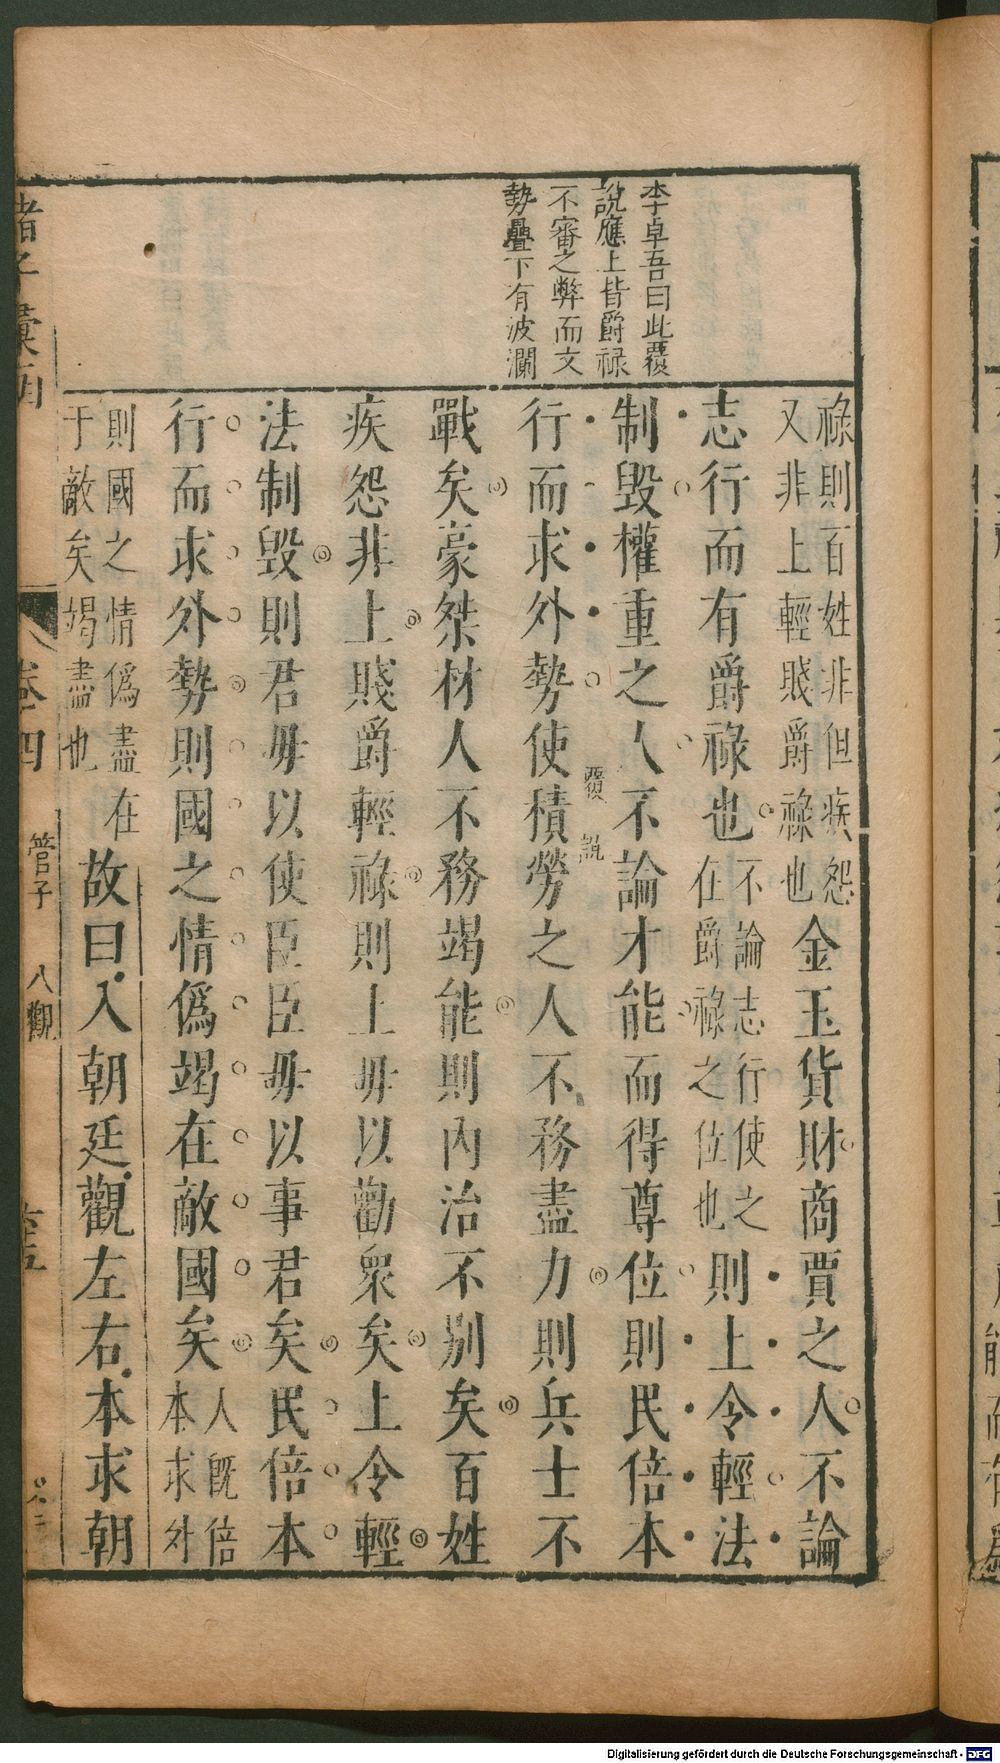 李卓吾曰此覆
說應上皆爵祿
不審之弊而文
勢疊下有波瀾
祿則百姓非但疾怨
又非上輕賤爵祿也
金玉貨財商賈之人不論
志行而有爵祿也
不論志行使之
在爵祿之位也
則上令輕法
制毀權重之人不論才能而得尊位則民倍本
行而求外勢使積勞之人不務盡力則兵士不
覆說
戰矣豪桀材人不務竭能則內治不別矣百姓
疾怨非上賤爵輕祿則上毋以勸眾矣上令輕
法制毀則君毋以使臣臣毋以事君矣民倍本
行而求外勢則國之情偽竭在敵國矣
人既倍
本求外
則國之情偽盡在
于敵矣竭盡也
故曰入朝廷觀左右本求朝
諸子彙函
卷四
管子
八觀
六五
Digitalisierung gefördert durch die Deutsche Forschungsgemeinschaft - DFG